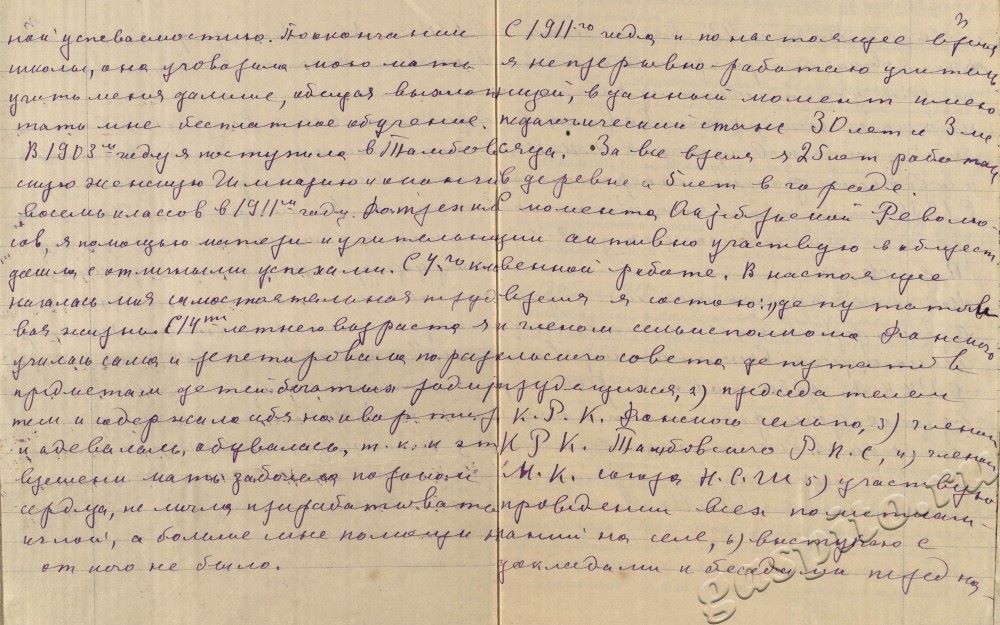 ной успеваемостию. По окончании
школы, она уговорила мою мать
учить меня дальше, обещая выхлопо-
тать мне бесплатное обучение.
В 1903 м году я поступила в Тамбов
скую женскую Гимназию и окончи
восемь классов в 1911 м году.
сов, я помощью матери и учительниц
дошла с отличными успехами. С 4го кл
началась моя самостоятельная трудо
вая жизнь. С 14ти летнего возраста я
училась сама и репетировала по разн
предметам детей богатых родит
тем и содержала себя на квартире
и одевалась, обувалась, т. к. к эт
времени мать заболела пороком
сердца, не могла прирабатывать
иглой, а больше мне помощи н
от кого не было.
3
С 1911го года и по настоящее время
я непрерывно работаю учитель
ницей, в данный момент имею
педагогический стаж 30 лет и 3 ме
сяца. За все время я 25 лет работаю
в деревне и 5 лет в городе.
С момента Октябрьской Револю-
ции активно участвую в общест
венной работе. В настоящее
время я состою: 1) депутатом
и членом сельисполкома
сельского совета депутатов
трудящихся, 2) председателем
К. Р. К. сельпо, 3) членом
К Р К. Тамбовского Р. П. С, 4) членом
М. К. союза Н. С. Ш 5) участвую
проведении всех
на селе, 6) выступаю с
докладами и беседами перед на-
gaspito.ru